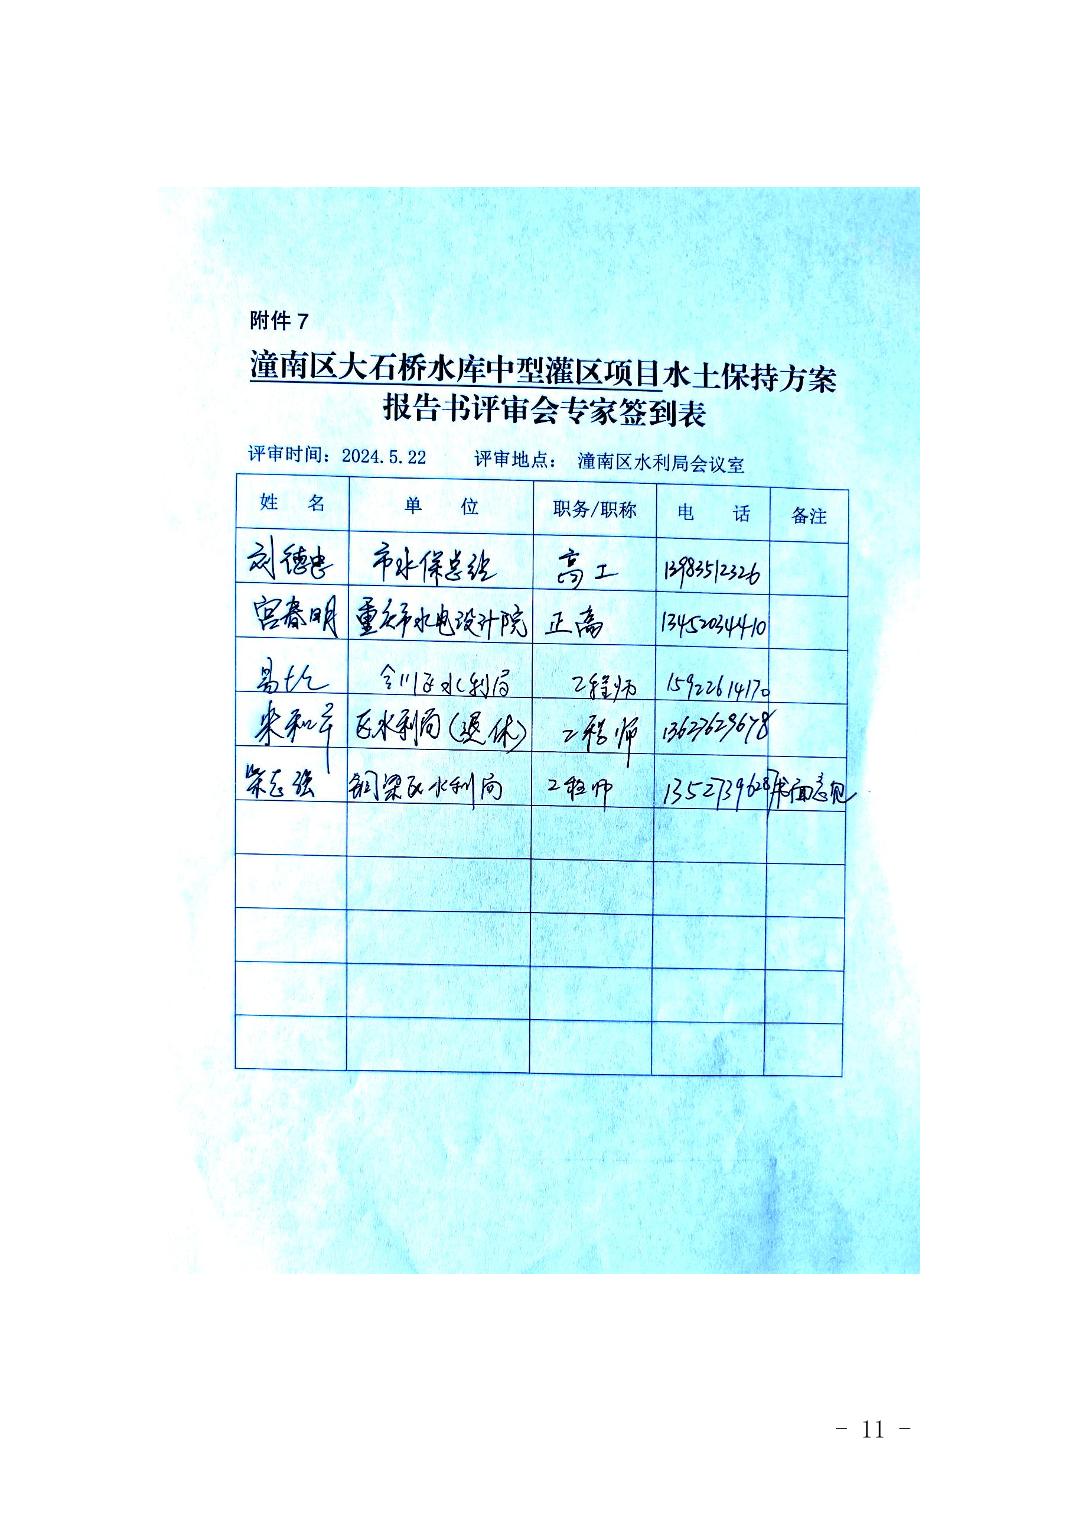 附件 7
潼南区大石桥水库中型灌区项目水土保持方案
报告书评审会专家签到表
评审时间：2024.5.22 评审地点： 潼南区水利局会议室
姓 名 单 位 职务/职称 电 话 备注
刘德忠 市水保总站 高工 13983512326
宫春明 重庆市水电设计院 正高 13452034410
合川区水利局 工程师 15922614170
区水利局(退休) 工程师 13627629678
荣志强 铜梁区水利局 工程师 13527396287 书面意见
- 11 -